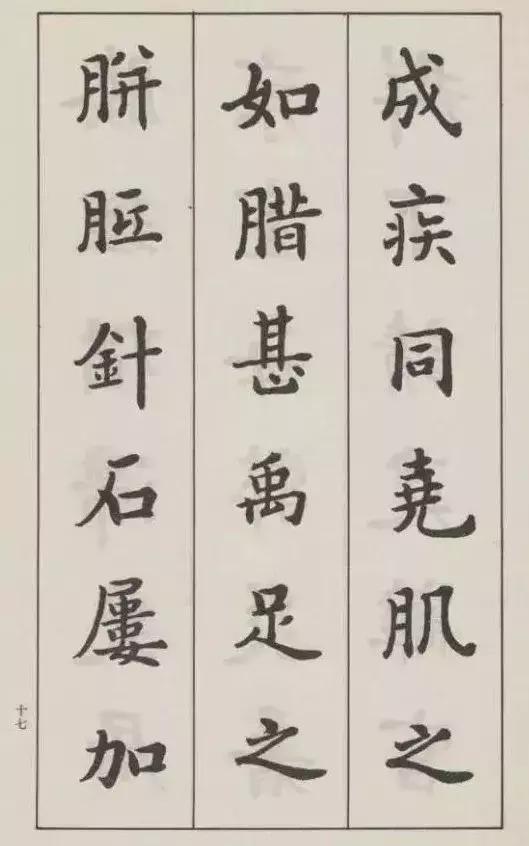 成疾同堯肌之
如腊甚禹足之
胼胝針石屢加
十七